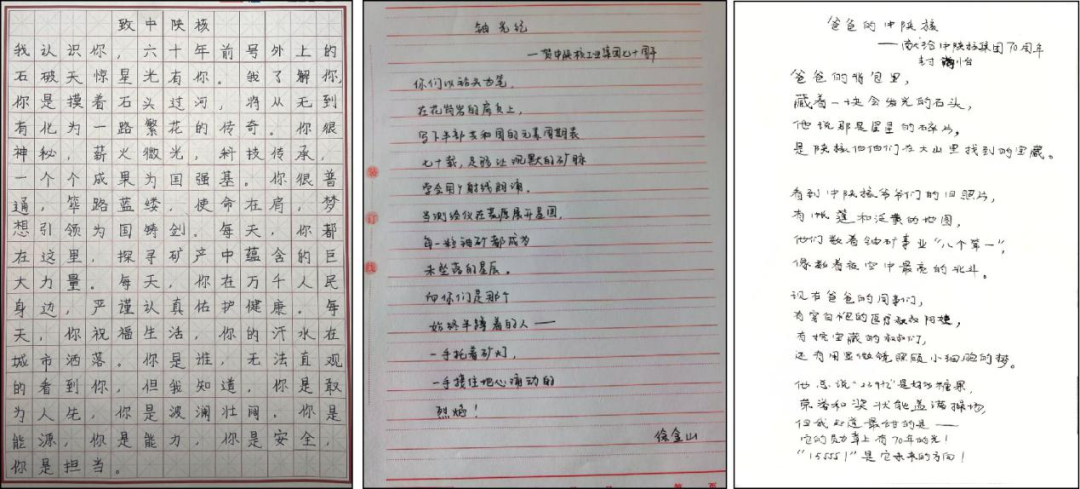 致中陕核
我认识你，六十年前号外上的
石破天惊星光有你。我了解你，
你是摸着石头过河，将从无到
有化为一路繁花的传奇。你很
神秘，薪火微光，科技传承，
一个个成果为国强基。你很普
通，筚路蓝缕，使命在肩，梦
想引领为国铸剑。每天，你都
在这里，探寻矿产中蕴含的巨
大力量。每天，你在万千人民
身边，严谨认真佑护健康。每
天，你祝福生活，你的汗水在
城市洒落。你是谁，无法直观
的看到你，但我知道，你是敢
为人先，你是波澜壮阔，你是
能源，你是能力，你是安全，
你是担当。
铀光纪
——贺中陕核工业集团七十周年
你们以镐头为笔，
在花岗岩的扉页上，
写下半部共和国的元素周期表
七十载，足够让沉默的矿脉
学会用γ射线朗诵。
当测绘仪在荒原展开星图，
每一粒铀矿都成为
未坠落的星辰。
而你们是那个
始终半蹲着的人——
一手托着矿灯，
一手摁住地心涌动的
烈焰！
徐金山
爸爸的中陕核
——献给中陕核集团70周年
爸爸的背包里，
藏着一块会发光的石头，
他说那是星星的碎片，
是陕核伯伯们在大山里找到的宝藏。
看到中陕核爷爷们的旧照片，
有帐篷和泛黄的地图，
他们数着铀矿事业“八个第一”，
像数着夜空中最亮的北斗。
现在爸爸的同事们，
有穿白袍的医疗叔叔阿姨，
有挖宝藏的叔叔们，
还有用显微镜照顾小细胞的梦。
他总说“269亿”是好多糖果，
荣誉和奖状能盖满操场，
但我知道最甜的是——
它的勋章上有70年的光！
“15551”是它未来的方向！